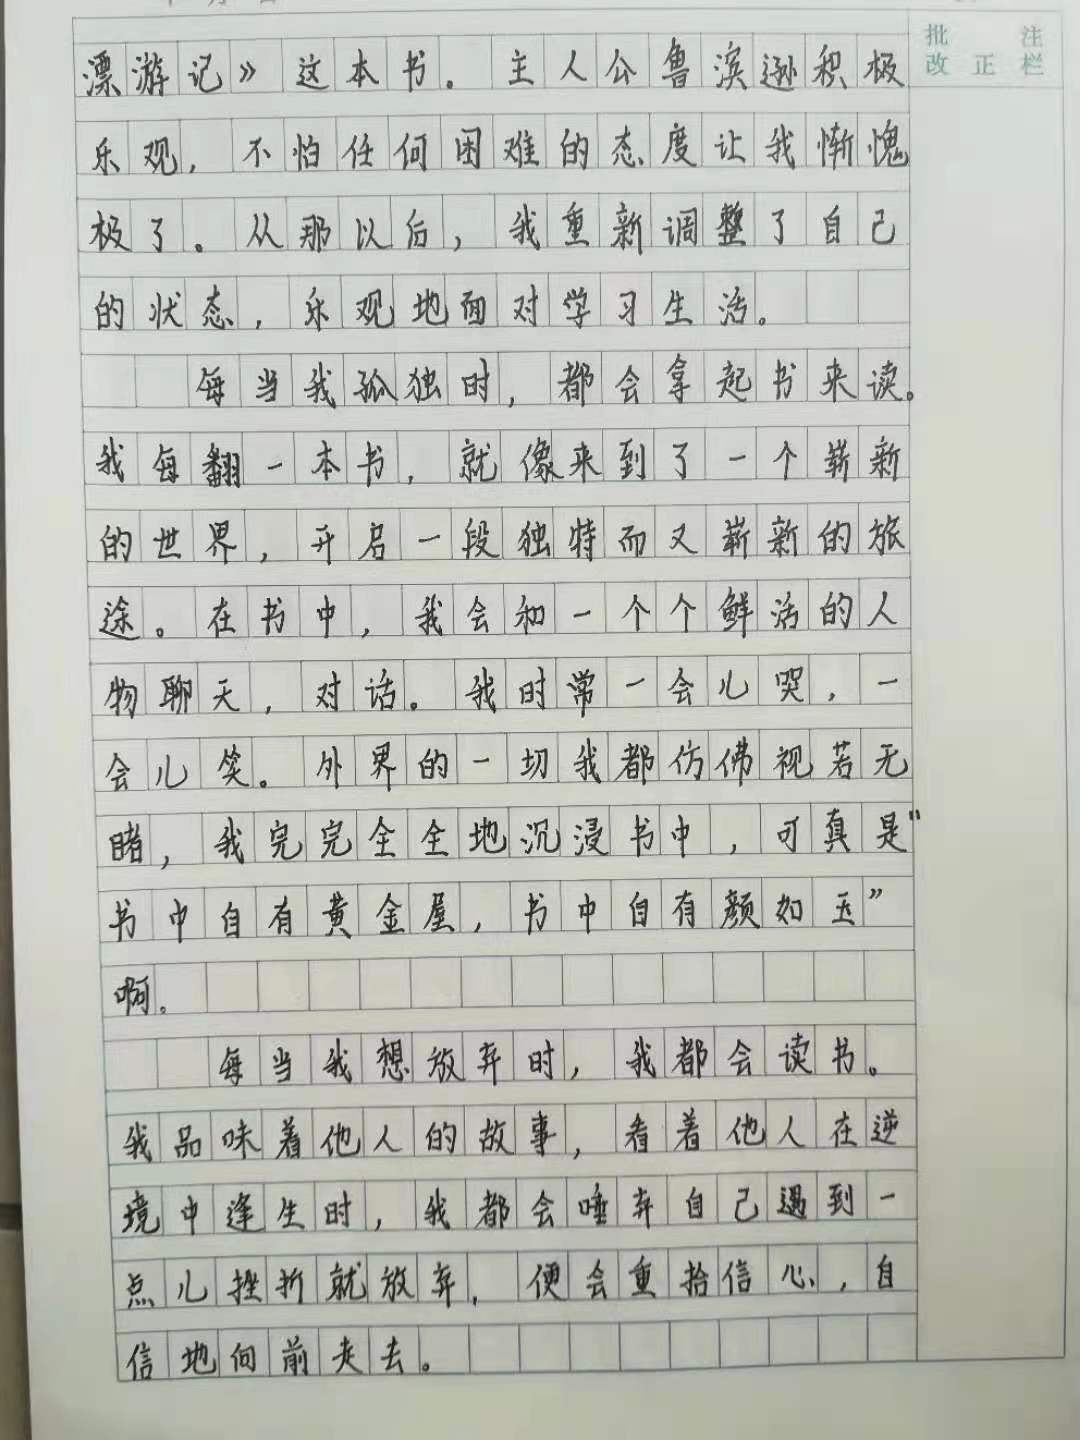 批 注
改 正 栏
漂游记》这本书。主人公鲁滨逊积极
乐观，不怕任何困难的态度让我惭愧
极了。从那以后，我重新调整了自己
的状态，乐观地面对学习生活。
每当我孤独时，都会拿起书来读。
我每翻一本书，就像来到了一个崭新
的世界，开启一段独特而又崭新的旅
途。在书中，我会和一个个鲜活的人
物聊天，对话。我时常一会儿哭，一
会儿笑。外界的一切我都仿佛视若无
睹，我完完全全地沉浸书中，可真是“
书中自有黄金屋，书中自有颜如玉”
啊。
每当我想放弃时，我都会读书。
我品味着他人的故事，看着他人在逆
境中逢生时，我都会唾弃自己遇到一
点儿挫折就放弃，便会重拾信心，自
信地向前走去。